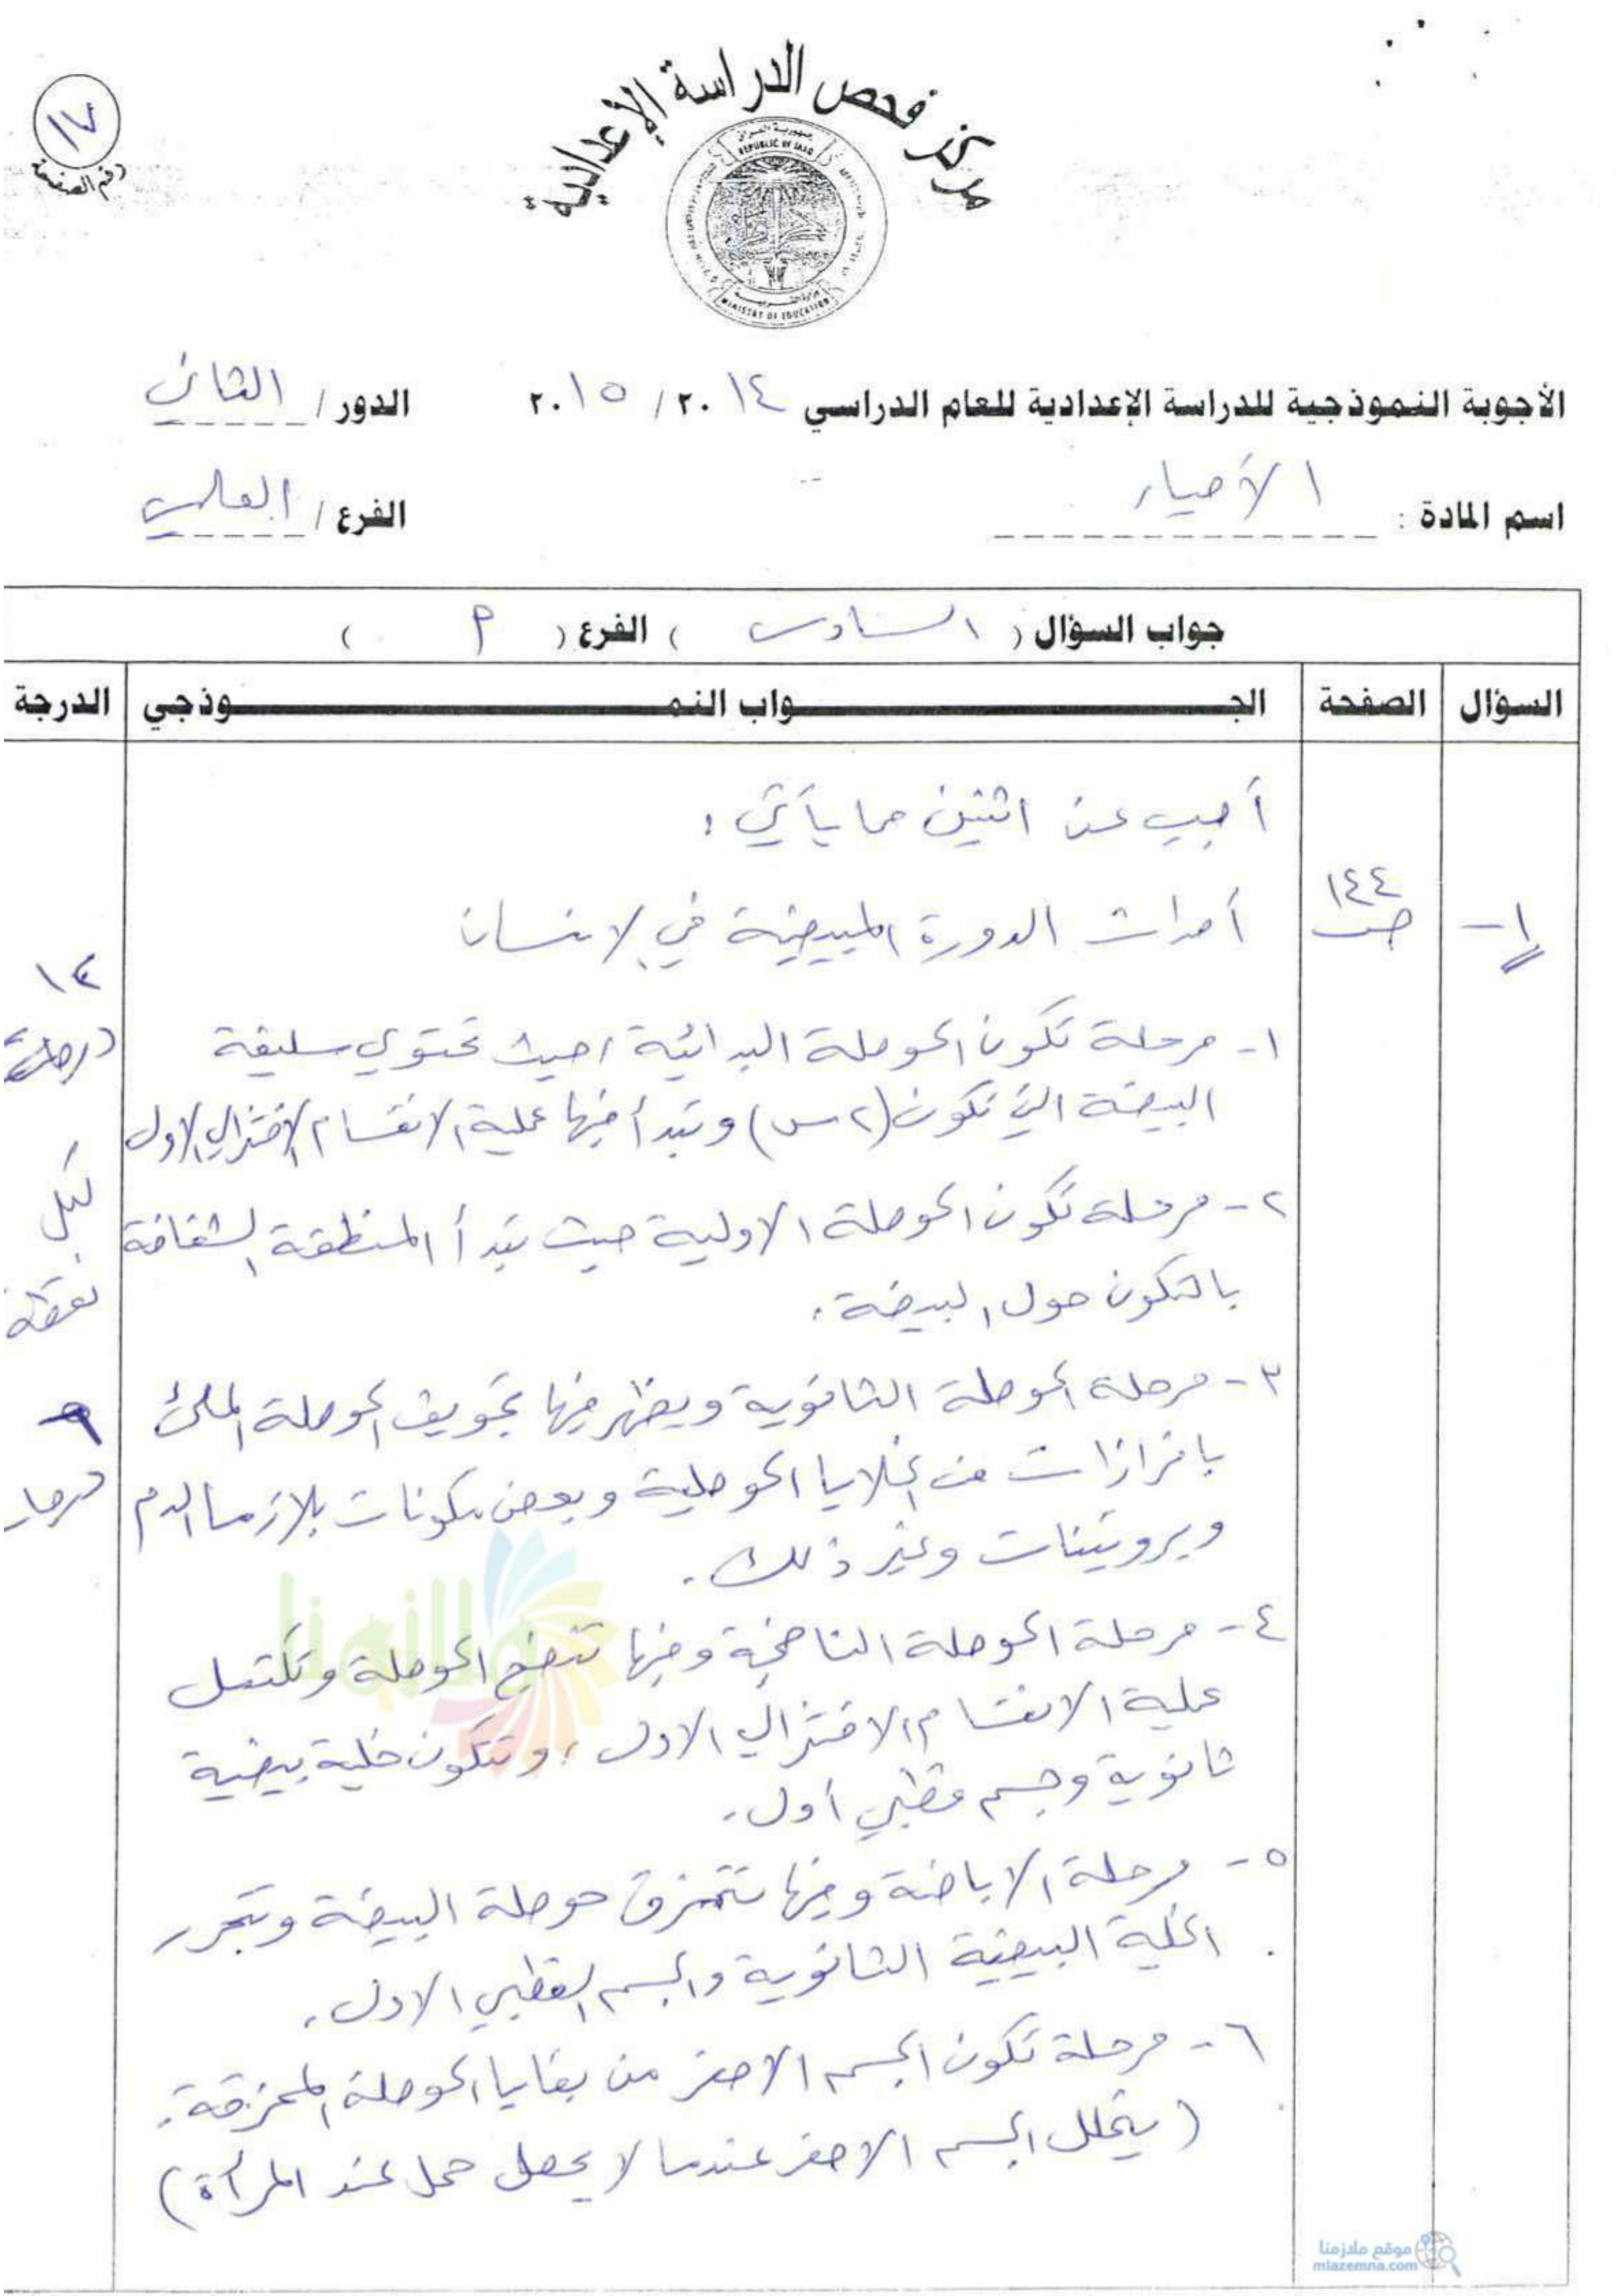 مركز فحص الدراسة الإعدادية
جمهورية العراق
REPUBLIC OF IRAQ
وزارة التربية
MINISTRY OF EDUCATION
١٧
رقم الصفحة
الأجوبة النموذجية للدراسة الإعدادية للعام الدراسي ٢٠١٤ / ٢٠١٥ الدور / الثاني
اسم المادة : الأحياء الفرع / العلمي
جواب السؤال ( السادس ) الفرع ( أ )
السؤال الصفحة الجـواب النمـوذجي الدرجة
أجب عن اثنين مما يأتي :
١- ص ١٤٤ أحداث الدورة المبيضية في الانسان
١٢
درجة
١- مرحلة تكون الحوصلة البدائية حيث تحتوي سليفة
البيضة التي تكون (٢س) وتبدأ فيها عملية الانقسام الاختزالي الاول
لكل
٢- مرحلة تكون الحوصلة الاولية حيث تبدأ المنطقة الشفافة
نقطة
بالتكون حول البيضة.
٣- مرحلة الحوصلة الثانوية ويظهر فيها تجويف الحوصلة الملئ
بافرازات من الخلايا الحوصلية وبعض مكونات بلازما الدم
وبروتينات وغير ذلك.
٤- مرحلة الحوصلة الناضجة وفيها تنضج الحوصلة وتكتمل
عملية الانقسام الاختزالي الاول ، وتتكون خلية بيضية
ثانوية وجسم قطبي أول.
٥- مرحلة الاباضة وفيها تتمزق حوصلة البيضة وتتحرر
الخلية البيضية الثانوية والجسم القطبي الاول.
٦- مرحلة تكون الجسم الاصفر من بقايا الحوصلة الممزقة.
(يتحلل الجسم الاصفر عندما لا يحصل حمل عند المرأة)
ملازمنا
موقع ملازمنا
mlazemna.com